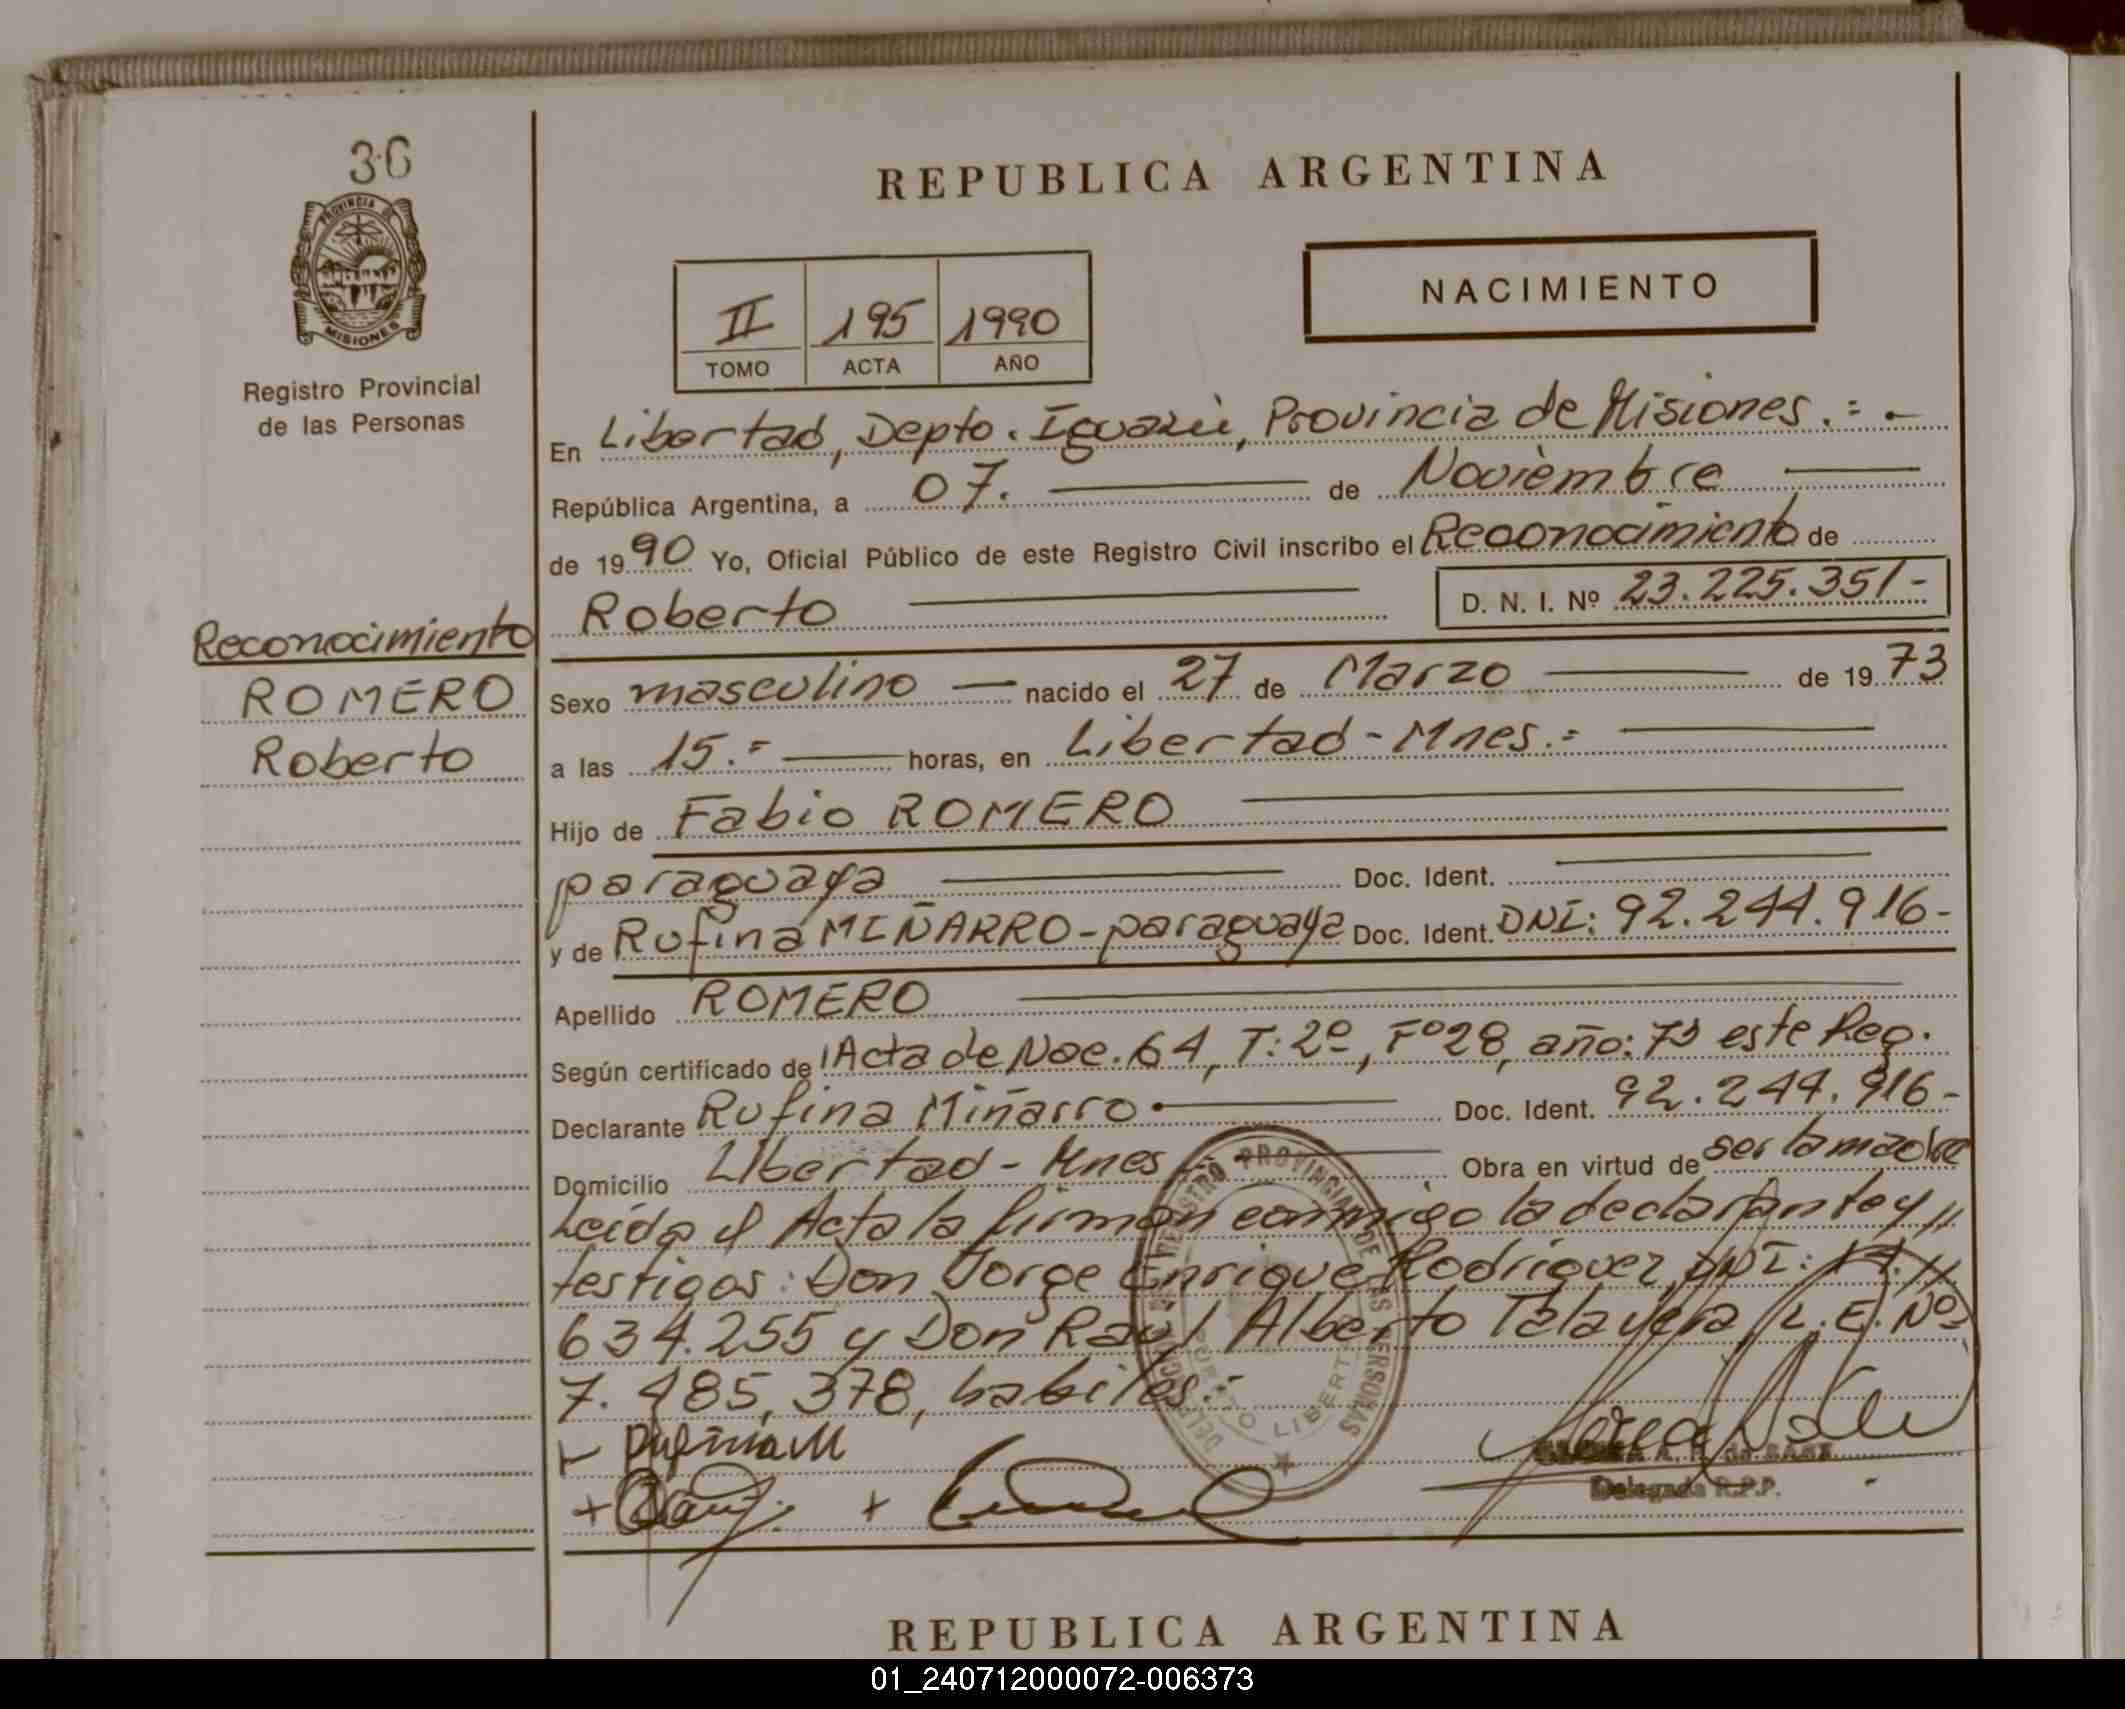 36
PROVINCIA DE
MISIONES
Registro Provincial
de las Personas
REPUBLICA ARGENTINA
NACIMIENTO
II 195 1990
TOMO ACTA AÑO
En Libertad, Depto. Iguazú, Provincia de Misiones.=.-
República Argentina, a 07. de Noviembre
de 1990 Yo, Oficial Público de este Registro Civil inscribo el Reconocimiento de
Roberto D. N. I. Nº 23.225.351-
Reconocimiento
ROMERO
Roberto
Sexo masculino — nacido el 27 de Marzo de 1973
a las 15.= horas, en Libertad - Mnes.=
Hijo de Fabio ROMERO
paraguaya Doc. Ident.
y de Rufina MIÑARRO - paraguaya Doc. Ident. DNI: 92.244.916-
Apellido ROMERO
Según certificado de Acta de Nac. 64, T: 2º, Fº 28, año: 73 este Reg.
Declarante Rufina Miñarro. Doc. Ident. 92.244.916-
Domicilio Libertad - Mnes Obra en virtud de ser la madre
Leída el Acta la firman conmigo la declarante y //
testigos: Don Jorge Enrique Rodríguez, DNI: //
634.255 y Don Raul Alberto Talavera, L.E. Nº
7.485,378, habiles.-
Rufina M
REGISTRO PROVINCIAL DE LAS PERSONAS
PUERTO LIBERTAD
A. R. de SANZ
Delegada R.P.P.
REPUBLICA ARGENTINA
01_240712000072-006373